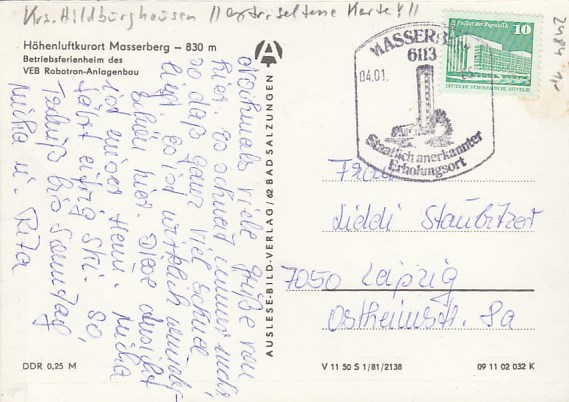 Krs. Hildburghausen !! extrem seltene Karte !!
2484 1r
Höhenluftkurort Masserberg – 830 m
Betriebsferienheim des
VEB Robotron-Anlagenbau
Nochmals viele Grüße von
hier. Es schneit immer mehr,
so daß ganz viel Schnee
liegt. Es ist wirklich wunder-
schön hier. Diese Ansicht
ist unser Heim. Micha
fährt eifrig Ski. So,
Tschüß bis Sonntag
Micha u. Rita
AUSLESE-BILD-VERLAG/62 BAD SALZUNGEN
MASSERBERG
6113
04.01.
Staatlich anerkannter
Erholungsort
10
DEUTSCHE DEMOKRATISCHE REPUBLIK
Frau
Liddi Staubitzer
7050 Leipzig
Ostheimstr. 8a
DDR 0,25 M
V 11 50 S 1/81/2138
09 11 02 032 K